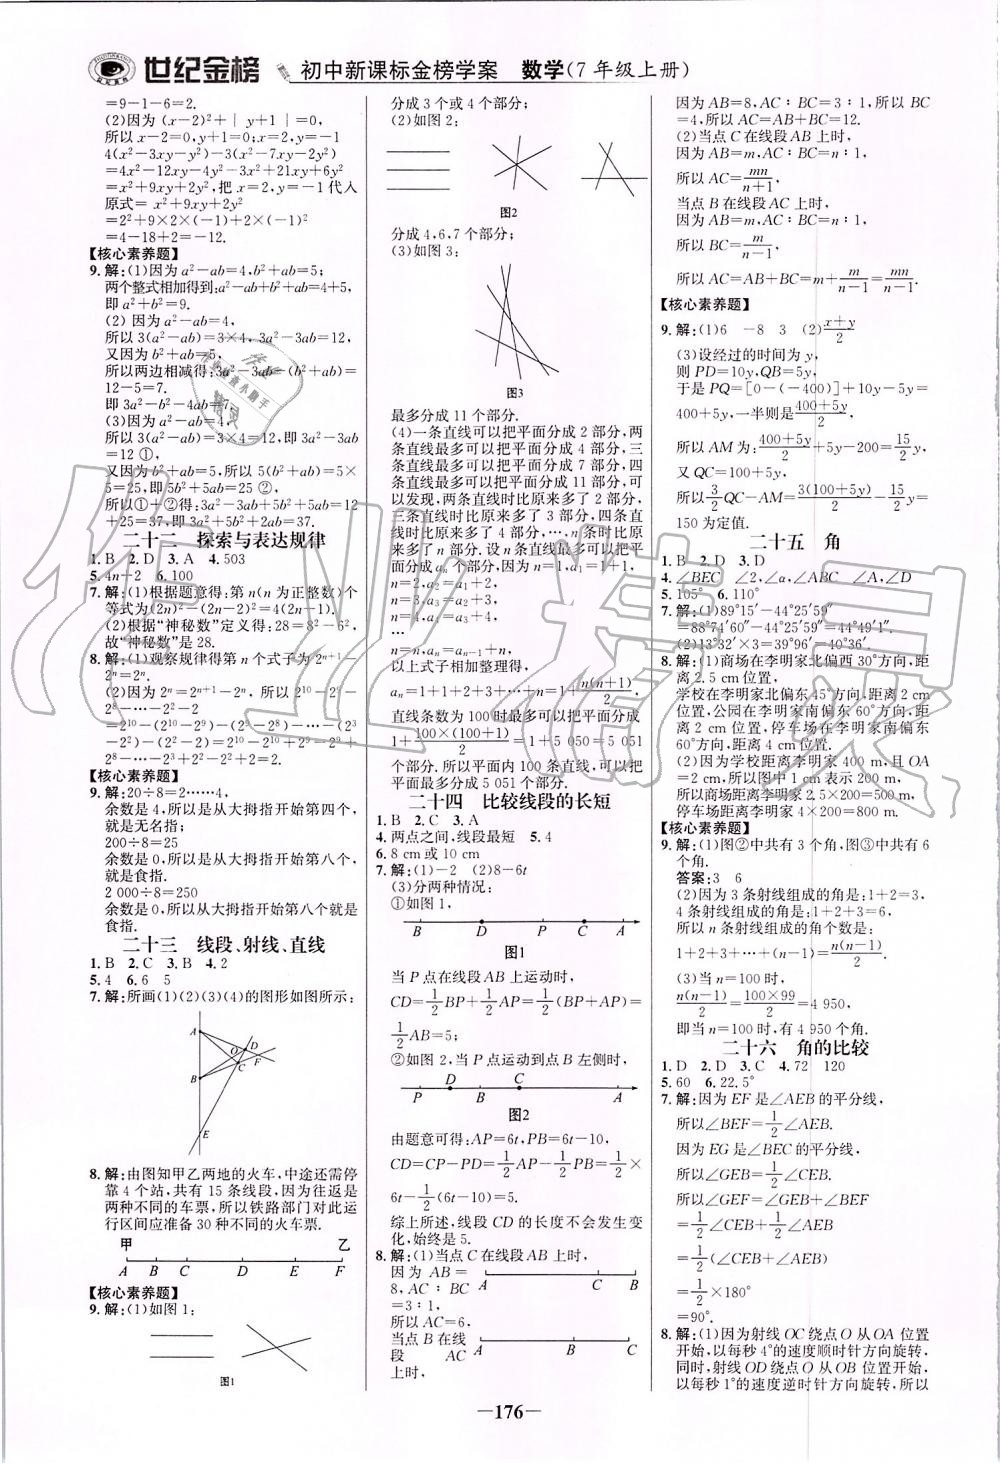 世纪金榜 初中新课标金榜学案 数学(7年级上册)
=9-1-6=2.
(2)因为 (x-2)²+| y+1|=0,
所以 x-2=0,y+1=0;x=2,y=-1
4(x²-3xy-y²)-3(x²-7xy-2y²)
=4x²-12xy-4y²-3x²+21xy+6y²
=x²+9xy+2y²,把 x=2,y=-1 代入
原式= x²+9xy+2y²
=2²+9×2×(-1)+2×(-1)²
=4-18+2=-12.
【核心素养题】
9.解:(1)因为 a²-ab=4,b²+ab=5;
两个整式相加得到:a²-ab+b²+ab=4+5,
即 a²+b²=9.
(2) 因为 a²-ab=4,
所以 3(a²-ab)=3×4,3a²-3ab=12,
又因为 b²+ab=5,
所以两边相减得:3a²-3ab-(b²+ab)=
12-5=7.
即 3a²-b²-4ab=7.
(3)因为 a²-ab=4,
所以 3(a²-ab)=3×4=12,即 3a²-3ab
=12 ①,
又因为 b²+ab=5,所以 5(b²+ab)=5×
5=25,即 5b²+5ab=25 ②,
所以①+②得:3a²-3ab+5b²+5ab=12
+25=37,即 3a²+5b²+2ab=37.
二十二 探索与表达规律
1.B 2.D 3.A 4.503
5.4n+2 6.100
7.解:(1)根据题意得:第 n(n 为正整数)个
等式为(2n)²-(2n-2)²=4(2n-1).
(2)根据“神秘数”定义得:28=8²-6²,
故“神秘数”是 28.
8.解:(1)观察规律得第 n 个式子为 2ⁿ⁺¹-
2ⁿ=2ⁿ.
(2)因为 2ⁿ=2ⁿ⁺¹-2ⁿ,所以 2¹⁰-2⁹-
2⁸-…-2²-2
=2¹⁰-(2¹⁰-2⁹)-(2⁹-2⁸)-…-(2³
-2²)-(2²-2)=2¹⁰-2¹⁰+2⁹-2⁹+
2⁸-…-2³+2²-2²+2=2.
【核心素养题】
9.解:20÷8=2……4,
余数是 4,所以是从大拇指开始第四个,
就是无名指;
200÷8=25
余数是 0,所以是从大拇指开始第八个,
就是食指.
2 000÷8=250
余数是 0,所以是从大拇指开始第八个,就是
食指.
二十三 线段、射线、直线
1.B 2.C 3.B 4.2
5.4 6.6 5
7.解:所画(1)(2)(3)(4)的图形如图所示:
A
O D
C F
B
E
8.解:由图知甲乙两地的火车,中途还需停
靠 4 个站,共有 15 条线段,因为往返是
两种不同的车票,所以铁路部门对此运
行区间应准备 30 种不同的火车票.
甲 乙
A B C D E F
【核心素养题】
9.解:(1)如图 1;
图1
分成 3 个或 4 个部分;
(2)如图 2;
图2
分成 4,6,7 个部分;
(3)如图 3;
图3
最多分成 11 个部分.
(4)一条直线可以把平面分成 2 部分,两
条直线最多可以把平面分成 4 部分,三
条直线最多可以把平面分成 7 部分,四
条直线最多可以把平面分成 11 部分,可
以发现,两条直线时比原来多了 2 部分,
三条直线比原来多了 3 部分,四条直线
时比原来多了 4 部分,…,n 条时比原来
多了 n 部分.设 n 条直线最多可以把平
面分成 aₙ 个部分,因为 n=1,a₁=1+1,
n=2,a₂=a₁+2,
n=3,a₃=a₂+3,
n=4,a₄=a₃+4,
…
n=n,aₙ=aₙ₋₁+n,
以上式子相加整理得,
aₙ=1+1+2+3+…+n=1+n(n+1)/2.
直线条数为 100 时最多可以把平面分成
1+100×(100+1)/2=1+5 050=5 051
个部分.所以平面内 100 条直线,可以把
平面最多分成 5 051 个部分.
二十四 比较线段的长短
1.B 2.C 3.A
4.两点之间,线段最短 5.4
6.8 cm 或 10 cm
7.解:(1)-2 (2)8-6t
(3)分两种情况:
①如图 1,
B D P C A
图1
当 P 点在线段 AB 上运动时,
CD=1/2BP+1/2AP=1/2(BP+AP)=
1/2AB=5;
②如图 2,当 P 点运动到点 B 左侧时,
P D B C A
图2
由题意可得:AP=6t,PB=6t-10,
CD=CP-PD=1/2AP-1/2PB=1/2×
6t-1/2(6t-10)=5.
综上所述,线段 CD 的长度不会发生变
化,始终是 5.
8.解:(1)当点 C 在线段 AB 上时,
因为 AB=
8,AC∶BC
=3∶1,
所以 AC=6,
A C B
当点 B 在线
段 AC
上时,
A B C
因为 AB=8,AC∶BC=3∶1,所以 BC
=4,所以 AC=AB+BC=12.
(2)当点 C 在线段 AB 上时,
因为 AB=m,AC∶BC=n∶1,
所以 AC=mn/(n+1),
当点 B 在线段 AC 上时,
因为 AB=m,AC∶BC=n∶1,
所以 BC=m/(n-1),
所以 AC=AB+BC=m+m/(n-1)=mn/(n-1).
【核心素养题】
9.解:(1)6 -8 3 (2)(x+y)/2
(3)设经过的时间为 y,
则 PD=10y,QB=5y,
于是 PQ=[0-(-400)]+10y-5y=
400+5y,一半则是(400+5y)/2,
所以 AM 为:(400+5y)/2+5y-200=15/2y,
又 QC=100+5y,
所以3/2QC-AM=3(100+5y)/2-15/2y=
150 为定值.
二十五 角
1.B 2.D 3.D
4.∠BEC ∠2,∠α,∠ABC ∠A,∠D
5.105° 6.110°
7.解:(1)89°15′-44°25′59″
=88°74′60″-44°25′59″=44°49′1″.
(2)13°32′×3=39°96′=40°36′.
8.解:(1)商场在李明家北偏西 30°方向,距
离 2.5 cm 位置,
学校在李明家北偏东 45°方向,距离 2 cm
位置,公园在李明家南偏东 60°方向,距
离 2 cm 位置,停车场在李明家南偏东
60°方向,距离 4 cm 位置.
(2)因为学校距离李明家 400 m,且 OA
=2 cm,所以图中 1 cm 表示 200 m,
所以商场距离李明家 2.5×200=500 m,
停车场距离李明家 4×200=800 m.
【核心素养题】
9.解:(1)图②中共有 3 个角,图③中共有 6
个角.
答案:3 6
(2)因为 3 条射线组成的角是:1+2=3,
4 条射线组成的角是:1+2+3=6,
所以 n 条射线组成的角个数是:
1+2+3+…+(n-1)=n(n-1)/2.
(3)当 n=100 时,
n(n-1)/2=100×99/2=4 950,
即当 n=100 时,有 4 950 个角.
二十六 角的比较
1.D 2.D 3.C 4.72 120
5.60 6.22.5°
7.解:因为 EF 是∠AEB 的平分线,
所以∠BEF=1/2∠AEB.
因为 EG 是∠BEC 的平分线,
所以∠GEB=1/2∠CEB.
所以∠GEF=∠GEB+∠BEF
=1/2∠CEB+1/2∠AEB
=1/2(∠CEB+∠AEB)
=1/2×180°
=90°.
8.解:(1)因为射线 OC 绕点 O 从 OA 位置
开始,以每秒 4°的速度顺时针方向旋转,
同时,射线 OD 绕点 O 从 OB 位置开始,
以每秒 1°的速度逆时针方向旋转,所以
—176—
作业精灵